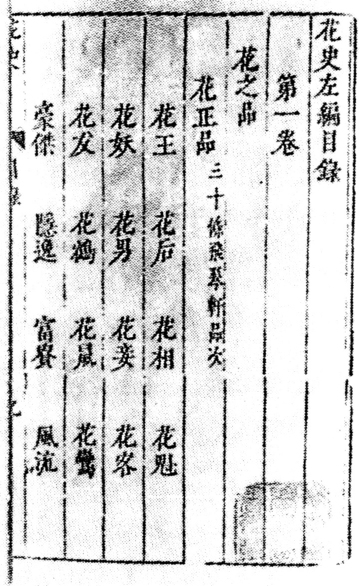 花史左編目錄
第一卷
花之品
花正品 三十條飛翠軒品次
花王 花后 花相 花魁
花妖 花男 花妾 花客
花友 花鶴 花鼠 花鶯
豪傑 隱逸 富貴 風流
花史 目錄